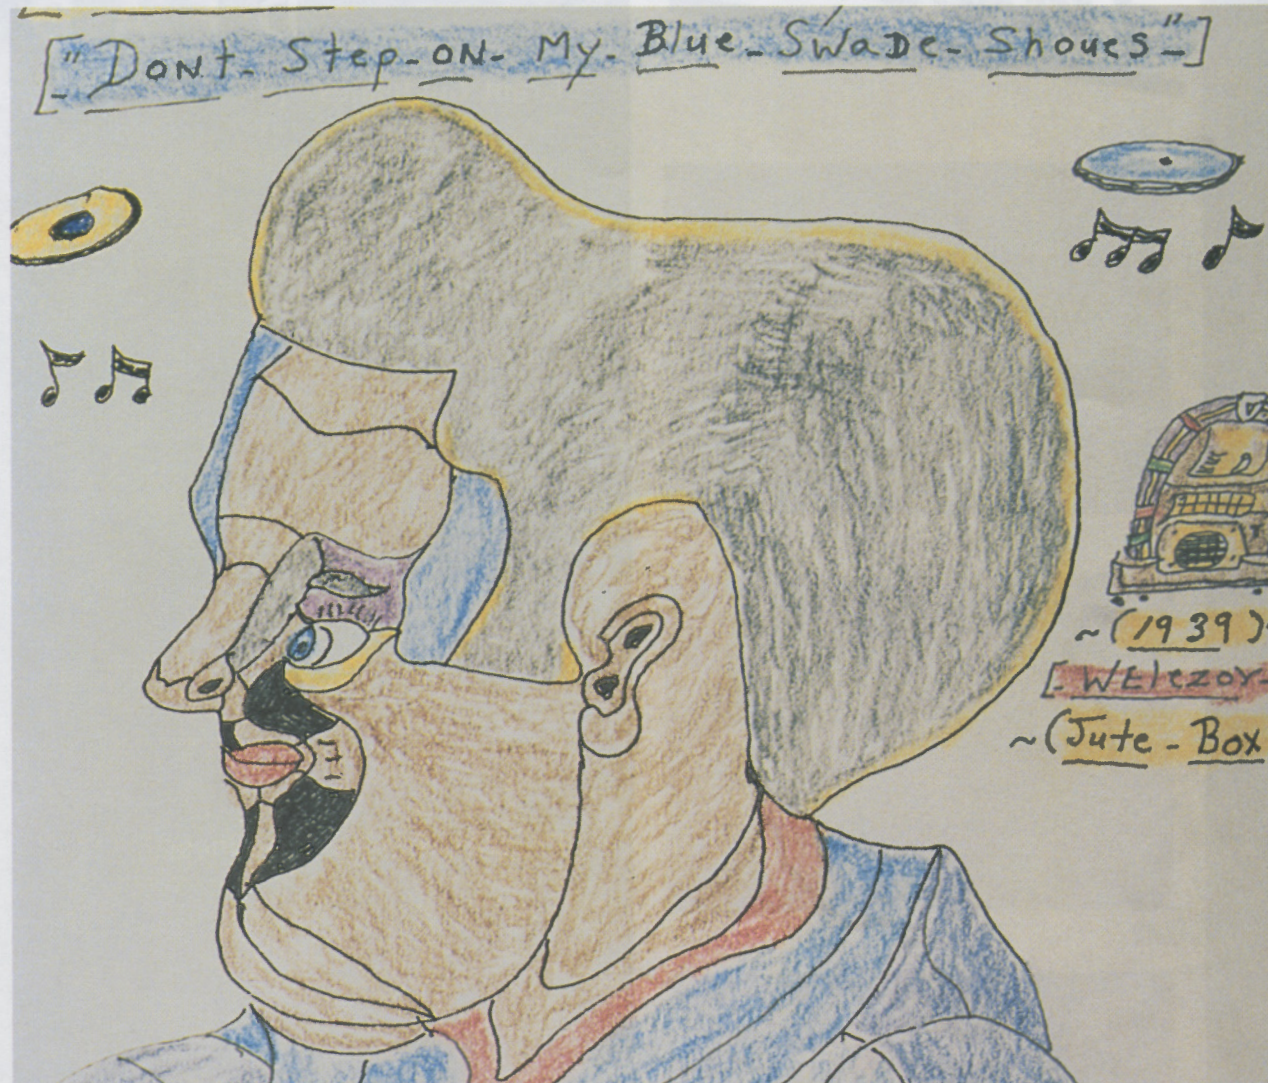 ["Dont-Step-ON-My-Blue-SWaDe-Shoues"-]
~(1939)
[-WElezor-
~(Jute-Box